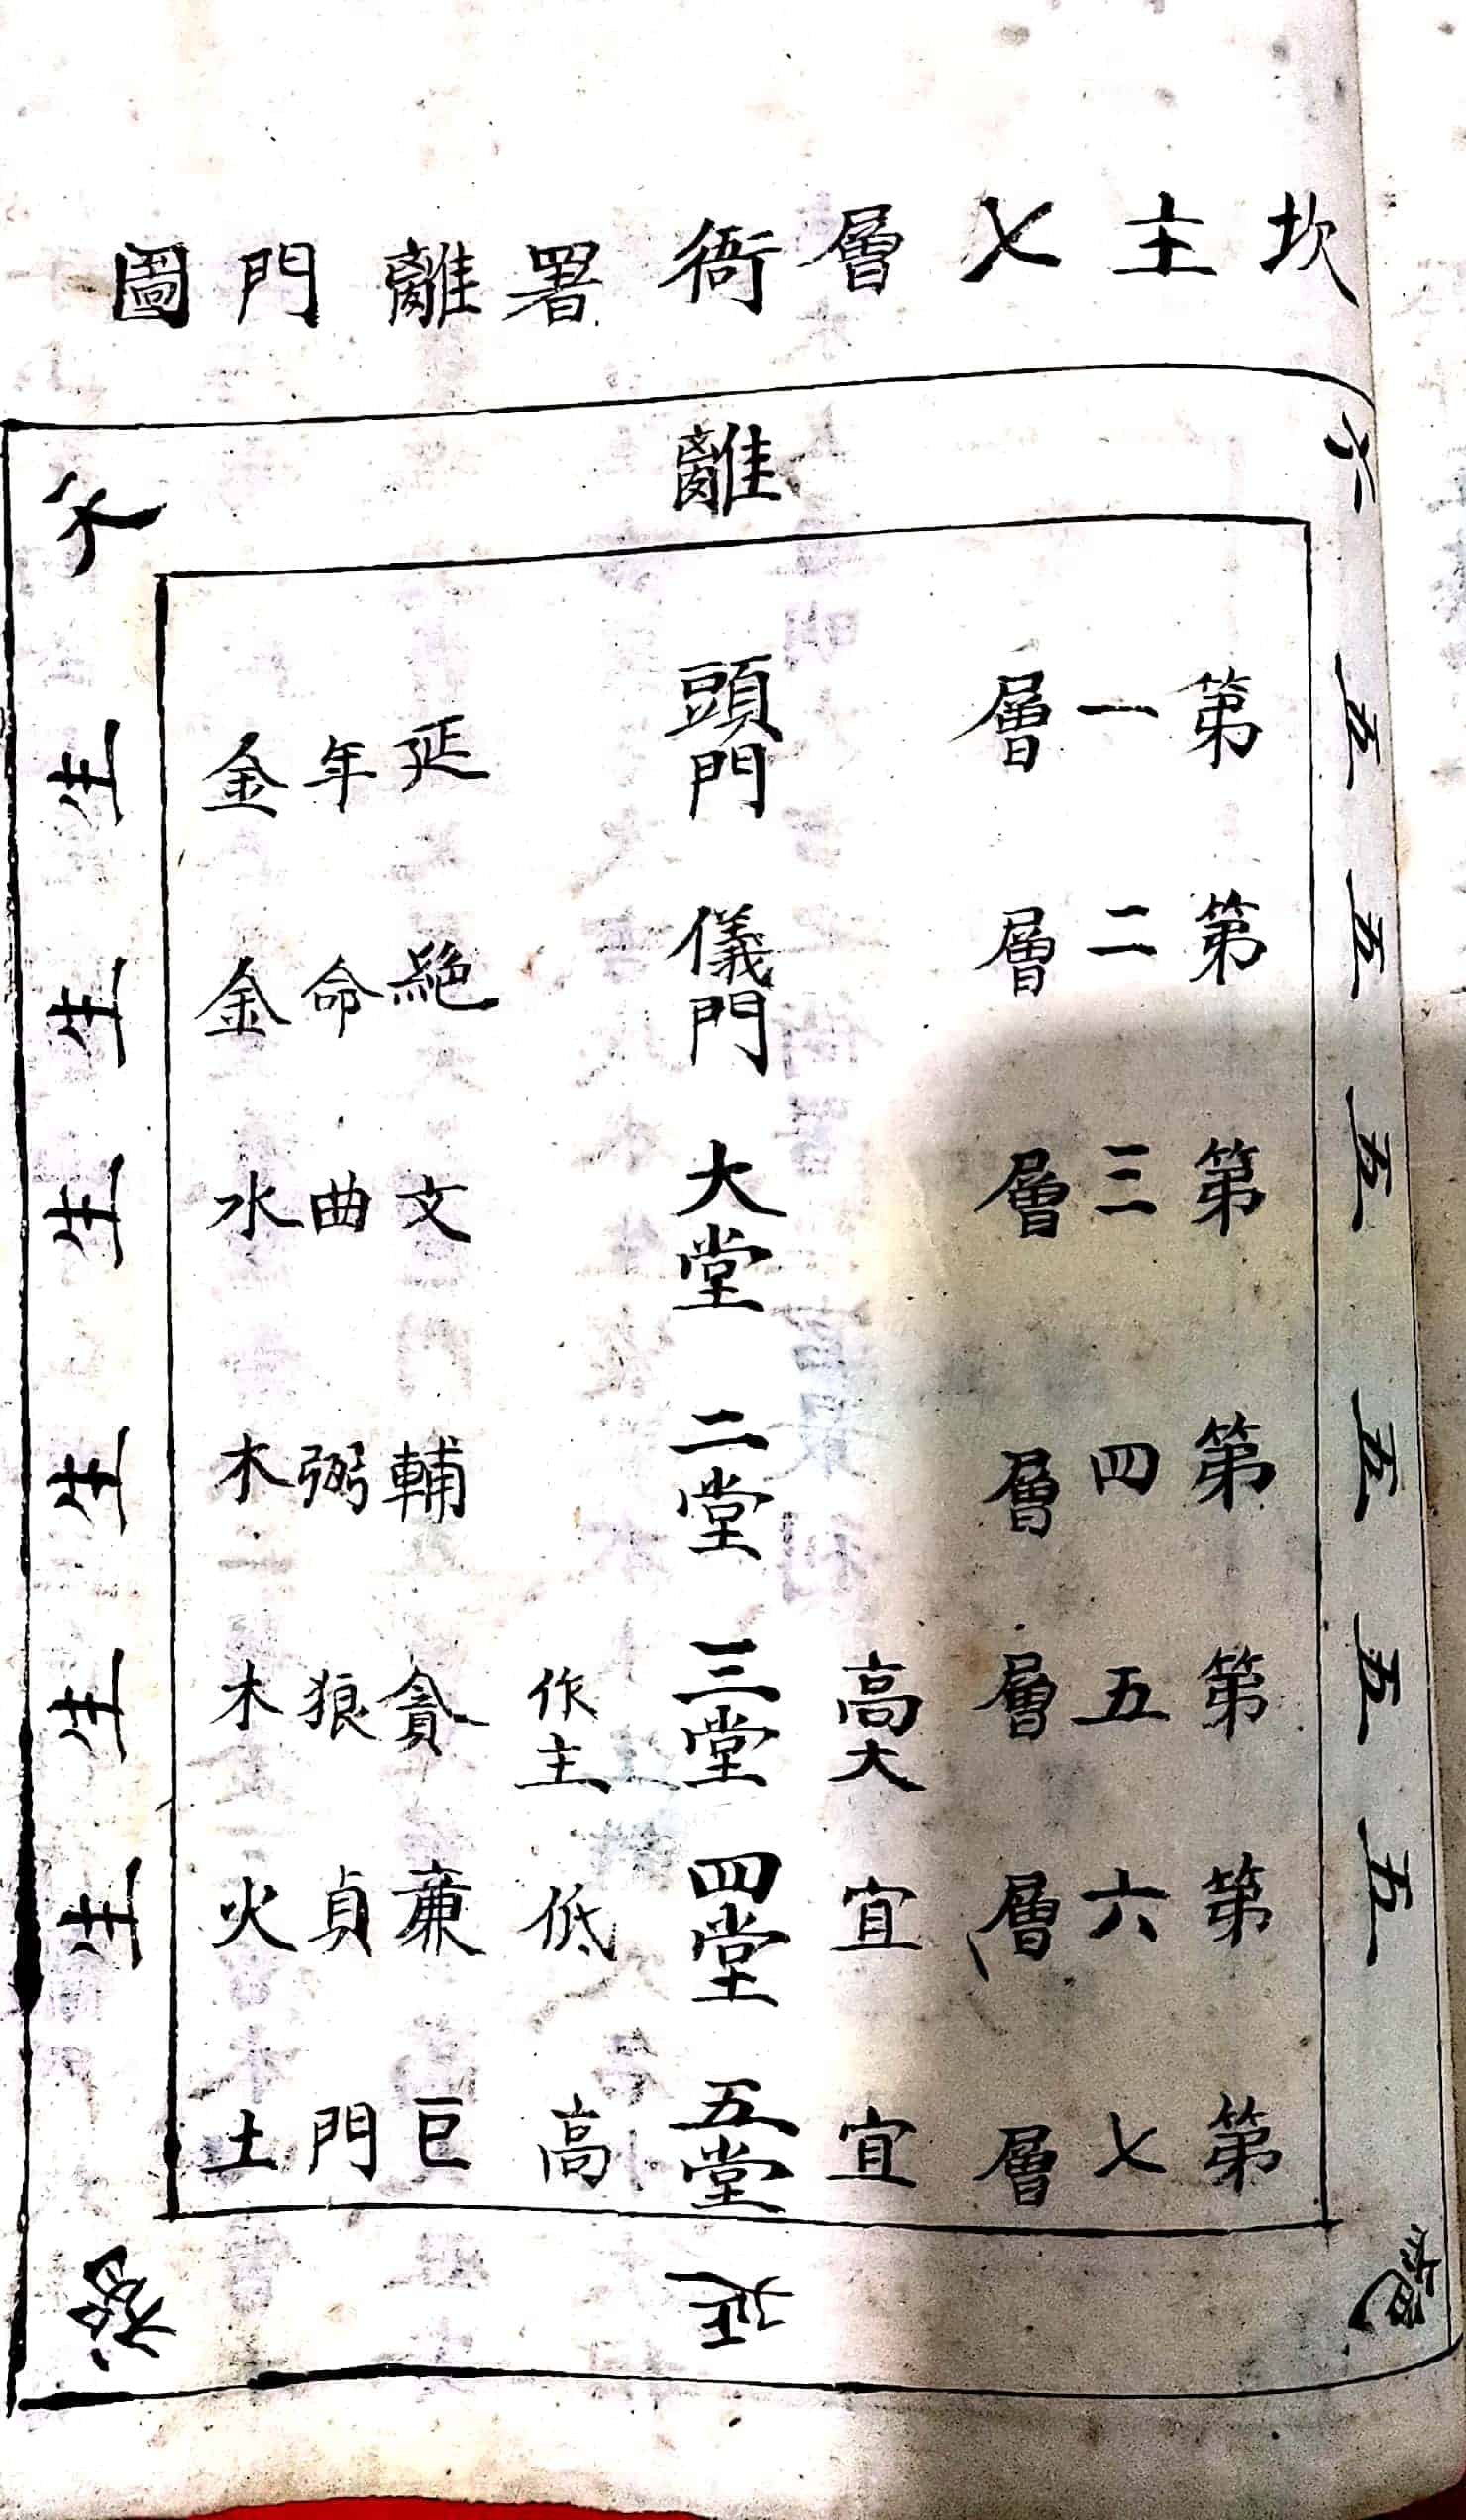 坎主七層衙署離門圖
六 離 天
五 第一層 頭門 延年金 生
五 第二層 儀門 絕命金 生
五 第三層 大堂 文曲水 生
五 第四層 二堂 輔弼木 生
五 第五層 高大 三堂 作主 貪狼木 生
五 第六層 宜 四堂 低 廉貞火 生
第七層 宜 五堂 高 巨門土
絕 延 禍